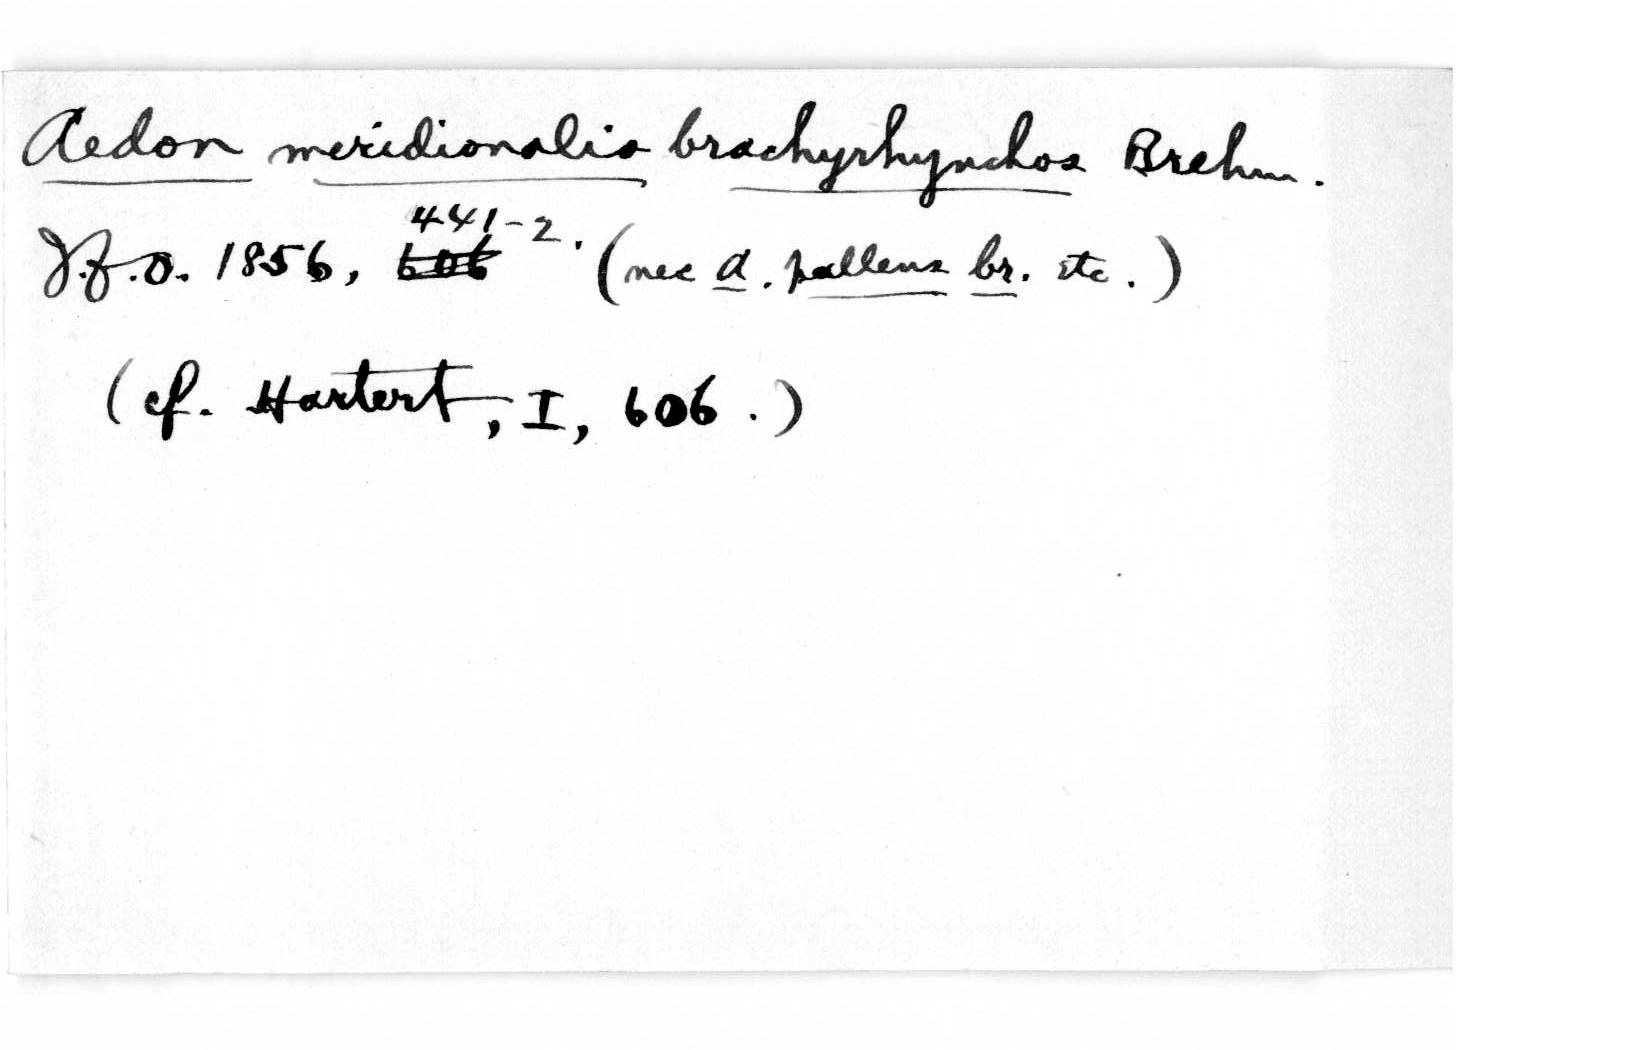 Aedon meridionalis brachyrhynchos Brehm.
J.f.O. 1856, 606 441-2. (nec A. pallens br. etc.)
(cf. Hartert, I, 606.)